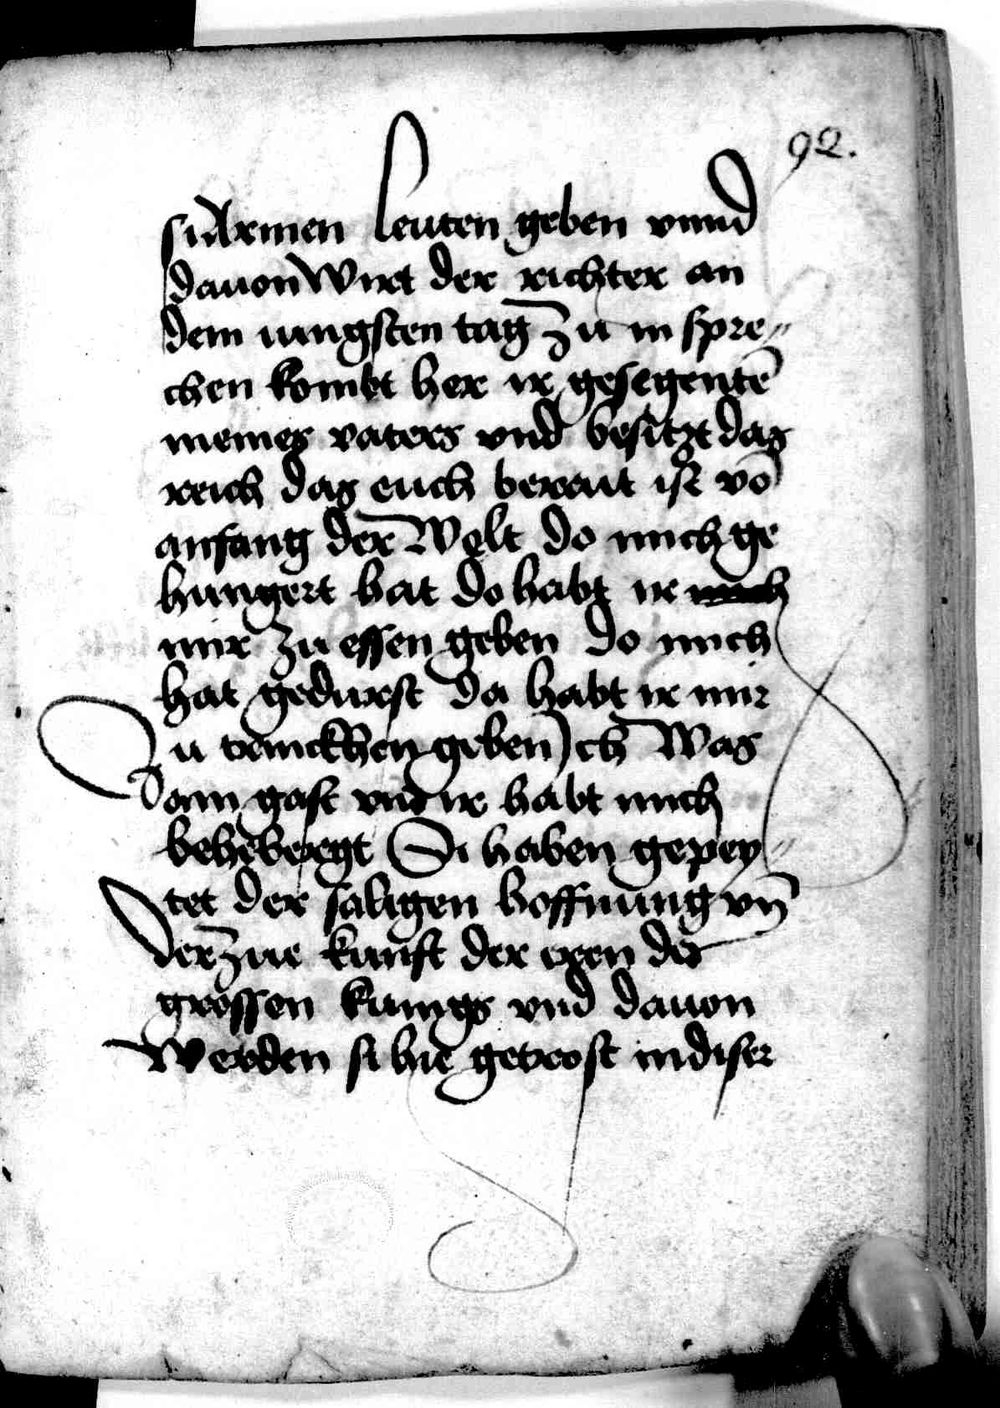 92.
si Armen leuten geben vnnd
dauon Wirt der richter an
dem iungsten tag zu in spre〃
chen kombt her ir gesegentē
meines vaters vnd besitzt das
reich das euch berait ist vō
anfang der Welt do mich ge
hungert hat do habt ir mich
mir zu essen geben do mich
hat gedurst da habt ir mir
zu trinckhen geben Ich Was
ain gast vnd ir habt mich
behebergt Si haben gepey〃
tet der saligen hoffnung vn̄
der zue kunft der eren des
grossen kunigs vnd dauon
Werden si hie getrost in diser